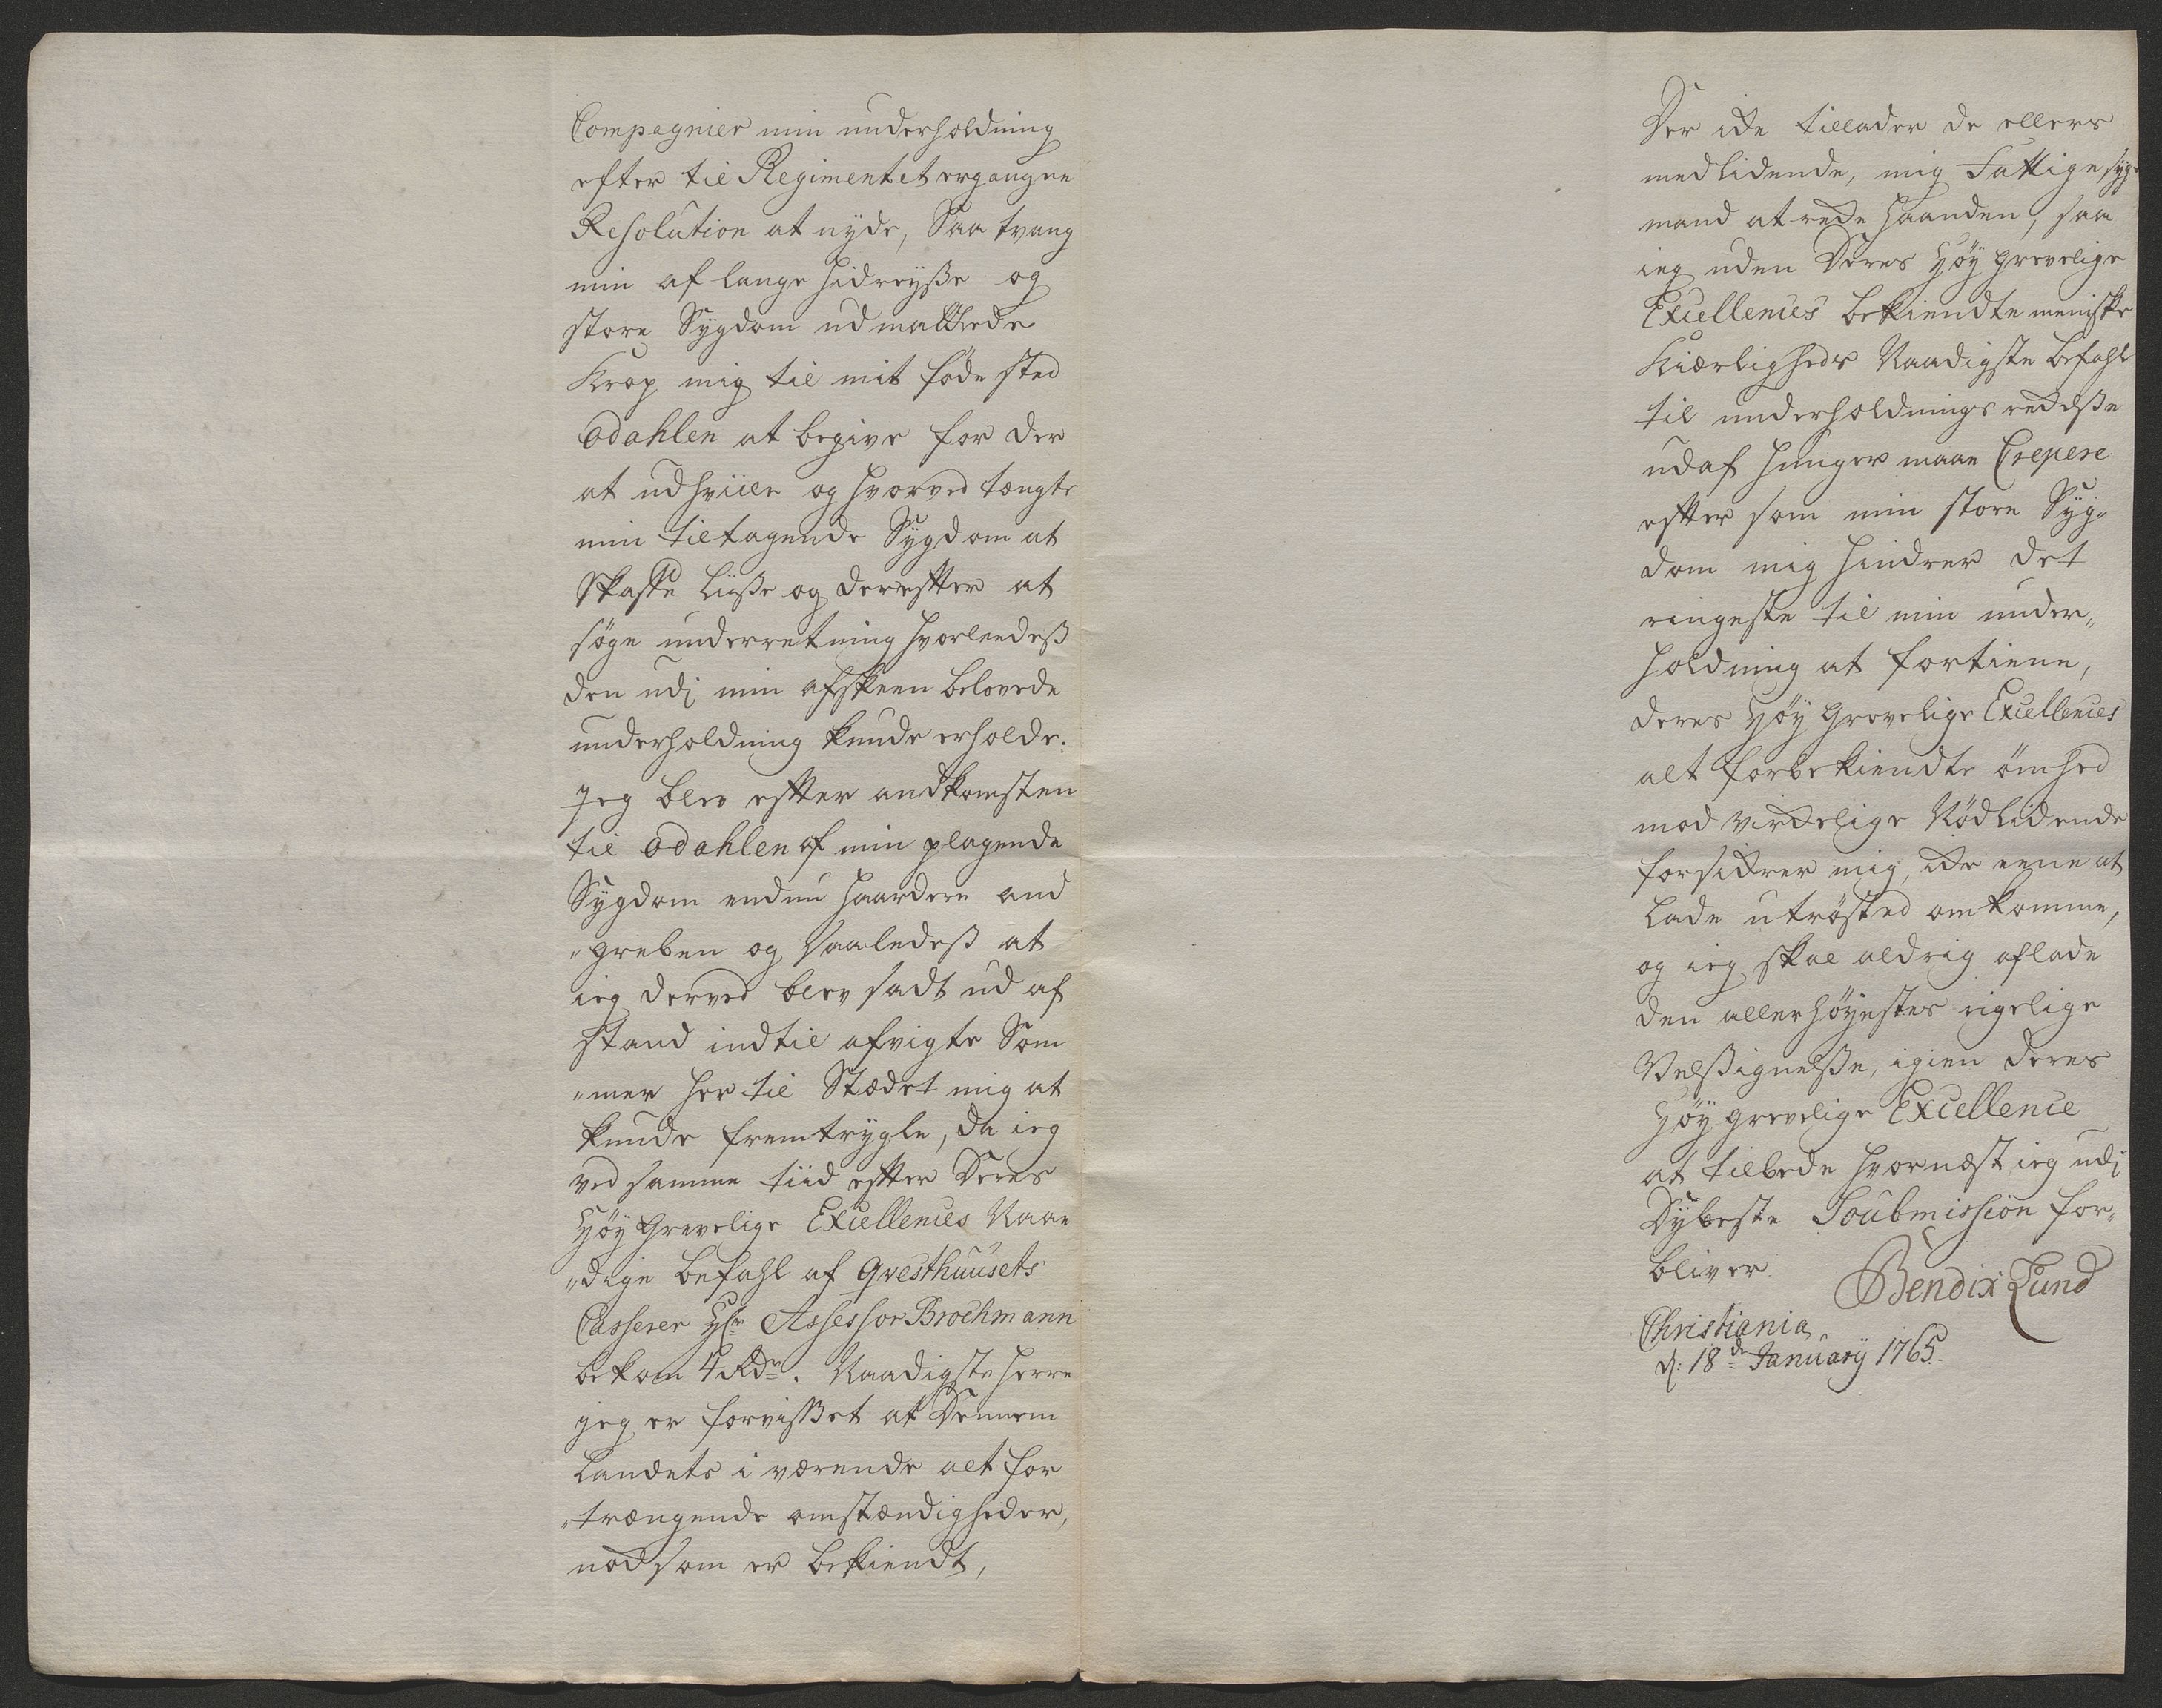 Compagnier min underholdning
efter til Regimentet ergangne
Resolution at nyde, Saa tvang
min af lange hidreyße og
store Sygdom udmattede
Krop mig til mit føde sted
Odahlen at begive for der
at udhviile og hvorved tængte
min tiltagende Sygdom at
skaffe Liiße og derefter at
søge underretning hvorleedeß
den udj min afskeen belovede
underholdning kunde erholde.
Jeg blev efter andkomsten
til Odahlen af min plagende
Sygdom endnu haardere and
"greben og saaledeß at
ieg derved blev sadt ud af
stand indtil afvigte Som
"mer her til Stædet mig at
kunde fremtrygle, da ieg
ved samme tiid efter Deres
Høy Grevelige Excellences Naae
"dige befahl af Qvesthuusets
Casserer Hr Assessor Brochmann
bekom 4 Rdr. Naadigste Herre
jeg er forvißet at Dennem
Landets i værende alt for
"trængende omstændigheder,
nodsom er bekiendt,
Der icke tillader de ellers
medlidende, mig Fattige syge
mand at recke haanden, saa
ieg uden Deres Høy Grevelige
Excellences bekiendte meniske
Kiærligheds Naadigste befahl
til underholdnings
udaf hunger maae Crepere
efter som min store Syg"
dom mig hindrer det
ringeste til min under"
holdning at fortiene,
deres Høy Grevelige Excellences
alt forbekiendte ömhed
mod virckelige Nödlidende
forsickrer mig, icke eene at
Lade utrösted omkomme,
og ieg skal aldrig aflade
den allerhöyestes rigelige
Velßignelße, igien deres
Høy Grevelige Excellence
at tilbede hvornæst ieg udj
Dybeste Soubmission for"
bliver
Bendix Lund
Christiania
d: 18de Januarÿ 1765.